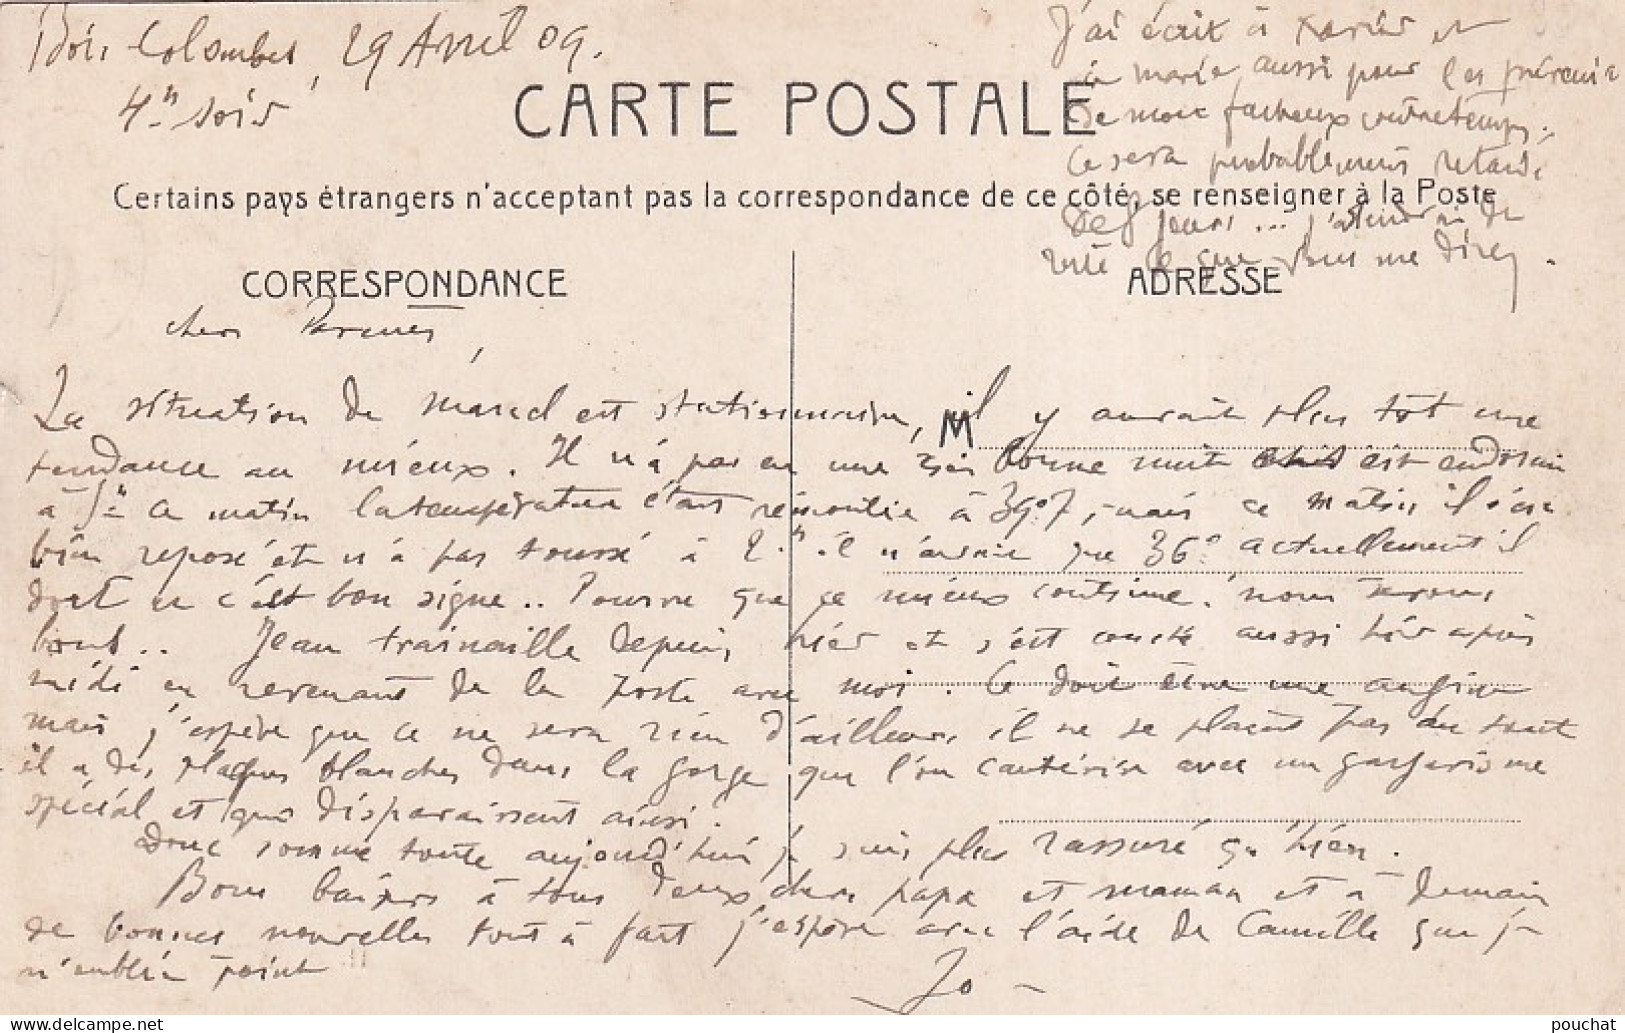 Bois Colombes, 29 Avril 09.
4h soir
J'ai écrit à Xavier et
à marie aussi pour les prévenir
de mon facheux contretemps.
Ce sera probablement retardé
de 8 jours... j'attendrai de
voir ce que vous me direz.
CARTE POSTALE
Certains pays étrangers n'acceptant pas la correspondance de ce côté, se renseigner à la Poste
CORRESPONDANCE
ADRESSE
chers Parents,
M
La situation de Marcel est stationnaire, il y aurait plus tôt une
tendance au mieux. Il n'a pas eu une très bonne nuit et est endormi
à 5h ce matin la température étant remontée à 39°7, mais ce matin il s'est
bien reposé et n'a pas toussé à 2h il n'avait que 36° actuellement il
dort et c'est bon signe.. Pourvu que ce mieux continue, nous serons
bons.. Jean trainaille depuis hier et s'est couché aussi hier après
midi en revenant de la Poste avec moi. Ce doit être une angine
mais j'espère que ce ne sera rien d'ailleurs il ne se plaint pas du tout
il a des plaques blanches dans la gorge que l'on cautérise avec un gargarisme
spécial et qui disparaissent ainsi.
Donc somme toute aujourd'hui je suis plus rassuré qu'hier.
Bons baisers à tous deux chers papa et maman et à demain
de bonnes nouvelles tout à fait j'espère avec l'aide de Camille que je
n'oublie point
Jo
pouchat
www.delcampe.net